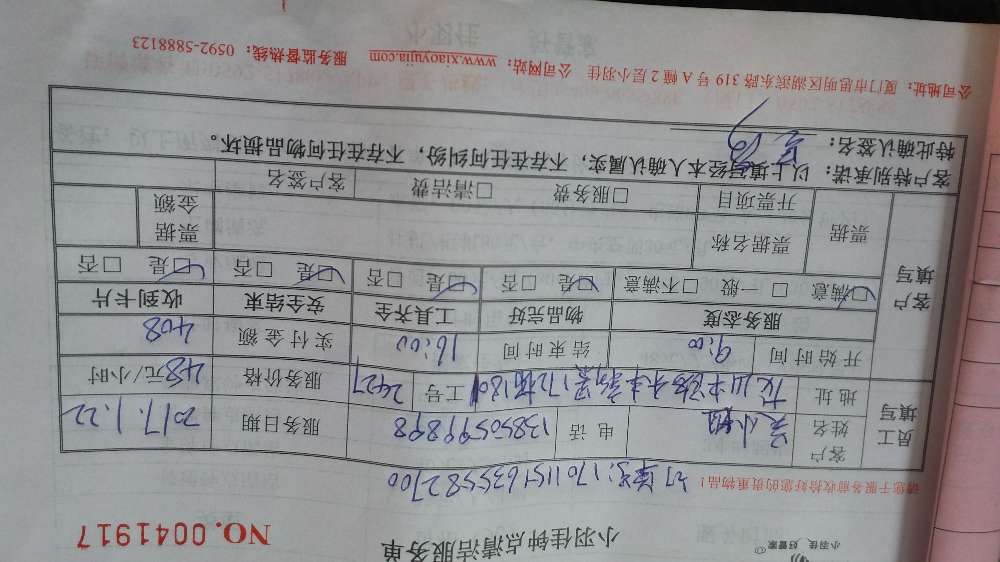 小羽佳 好管家
小羽佳钟点清洁服务单
NO.0041917
请您于服务前收拾好您的贵重物品!
订单号:1701151635582700
员工填写
客户姓名 吴小姐 电话 13850599898 服务日期 2017.1.22
地址 工号 2427 服务价格 48元/小时
客户填写
开始时间 9:00 结束时间 16:00 实付金额 408
服务态度 物品完好 工具齐全 安全结束 收到卡片
☑满意 □一般 □不满意 ☑是□否 ☑是□否 ☑是□否 ☑是□否
票据 票据名称 票据金额
开票项目 □服务费 □清洁费 客户签名
客户特别承诺:以上填写经本人确认属实,不存在任何纠纷,不存在任何物品损坏。
特此确认签名:
公司地址:厦门市思明区湖滨东路319号A幢2层小羽佳 公司网站:www.xiaoyujia.com 服务监督热线:0592-5888123